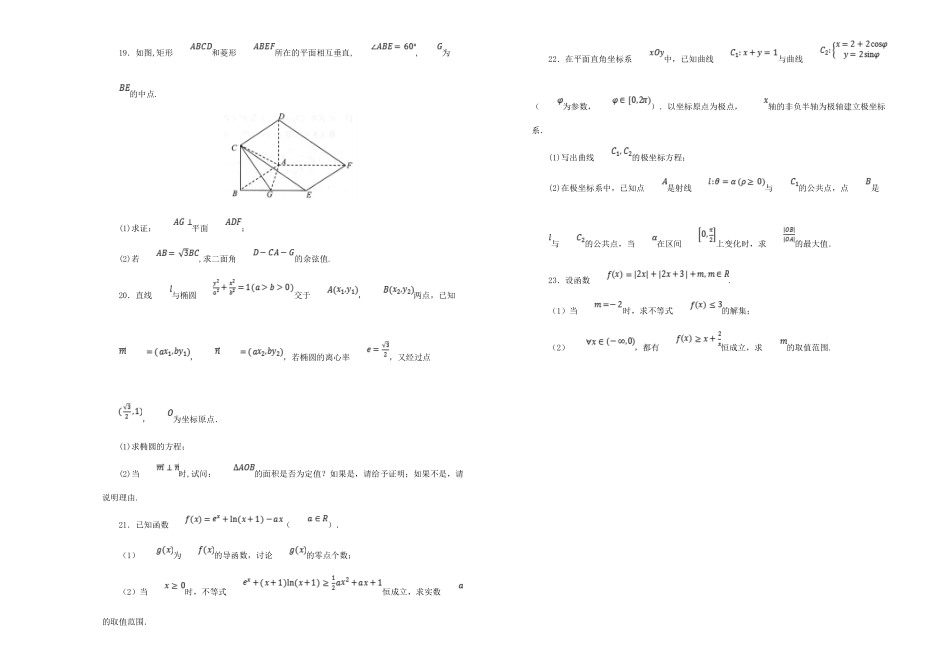 19．如图,矩形ABCD和菱形ABEF所在的平面相互垂直,∠ABE=60°,G为
BE的中点.
D
C
A
F
B
G
E
(1)求证：AG⊥平面ADF;
(2)若AB=√3BC,求二面角D−CA−G的余弦值.
20．直线l与椭圆y²/a²+x²/b²=1(a>b>0)交于A(x₁,y₁)，B(x₂,y₂)两点，已知
m⃗=(ax₁,by₁)，n⃗=(ax₂,by₂)，若椭圆的离心率e=√3/2，又经过点
(√3/2,1)，O为坐标原点．
(1)求椭圆的方程;
(2)当m⃗⊥n⃗时,试问：ΔAOB的面积是否为定值？如果是，请给予证明；如果不是，请
说明理由.
21．已知函数f(x)=eˣ+ln(x+1)−ax（a∈R）.
（1）g(x)为f(x)的导函数，讨论g(x)的零点个数；
（2）当x≥0时，不等式eˣ+(x+1)ln(x+1)≥½ax²+ax+1恒成立，求实数a
的取值范围.
22．在平面直角坐标系xOy中，已知曲线C₁:x+y=1与曲线C₂:{x=2+2cosφ y=2sinφ
（φ为参数，φ∈[0,2π)）．以坐标原点为极点，x轴的非负半轴为极轴建立极坐标
系．
(1)写出曲线C₁,C₂的极坐标方程;
(2)在极坐标系中，已知点A是射线l:θ=α(ρ≥0)与C₁的公共点，点B是
l与C₂的公共点，当α在区间[0,π/2]上变化时，求|OB|/|OA|的最大值.
23．设函数f(x)=|2x|+|2x+3|+m,m∈R.
（1）当m=−2时，求不等式f(x)≤3的解集；
（2）∀x∈(−∞,0)，都有f(x)≥x+2/x恒成立，求m的取值范围.